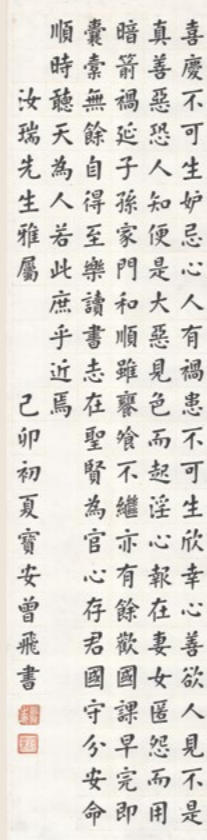 喜慶不可生妒忌心人有禍患不可生欣幸心善欲人見不是
真善惡恐人知便是大惡見色而起淫心報在妻女匿怨而用
暗箭禍延子孫家門和順雖饔飧不繼亦有餘歡國課早完即
囊橐無餘自得至樂讀書志在聖賢為官心存君國守分安命
順時聽天為人若此庶乎近焉
汝瑞先生雅屬
己卯初夏寶安曾飛書